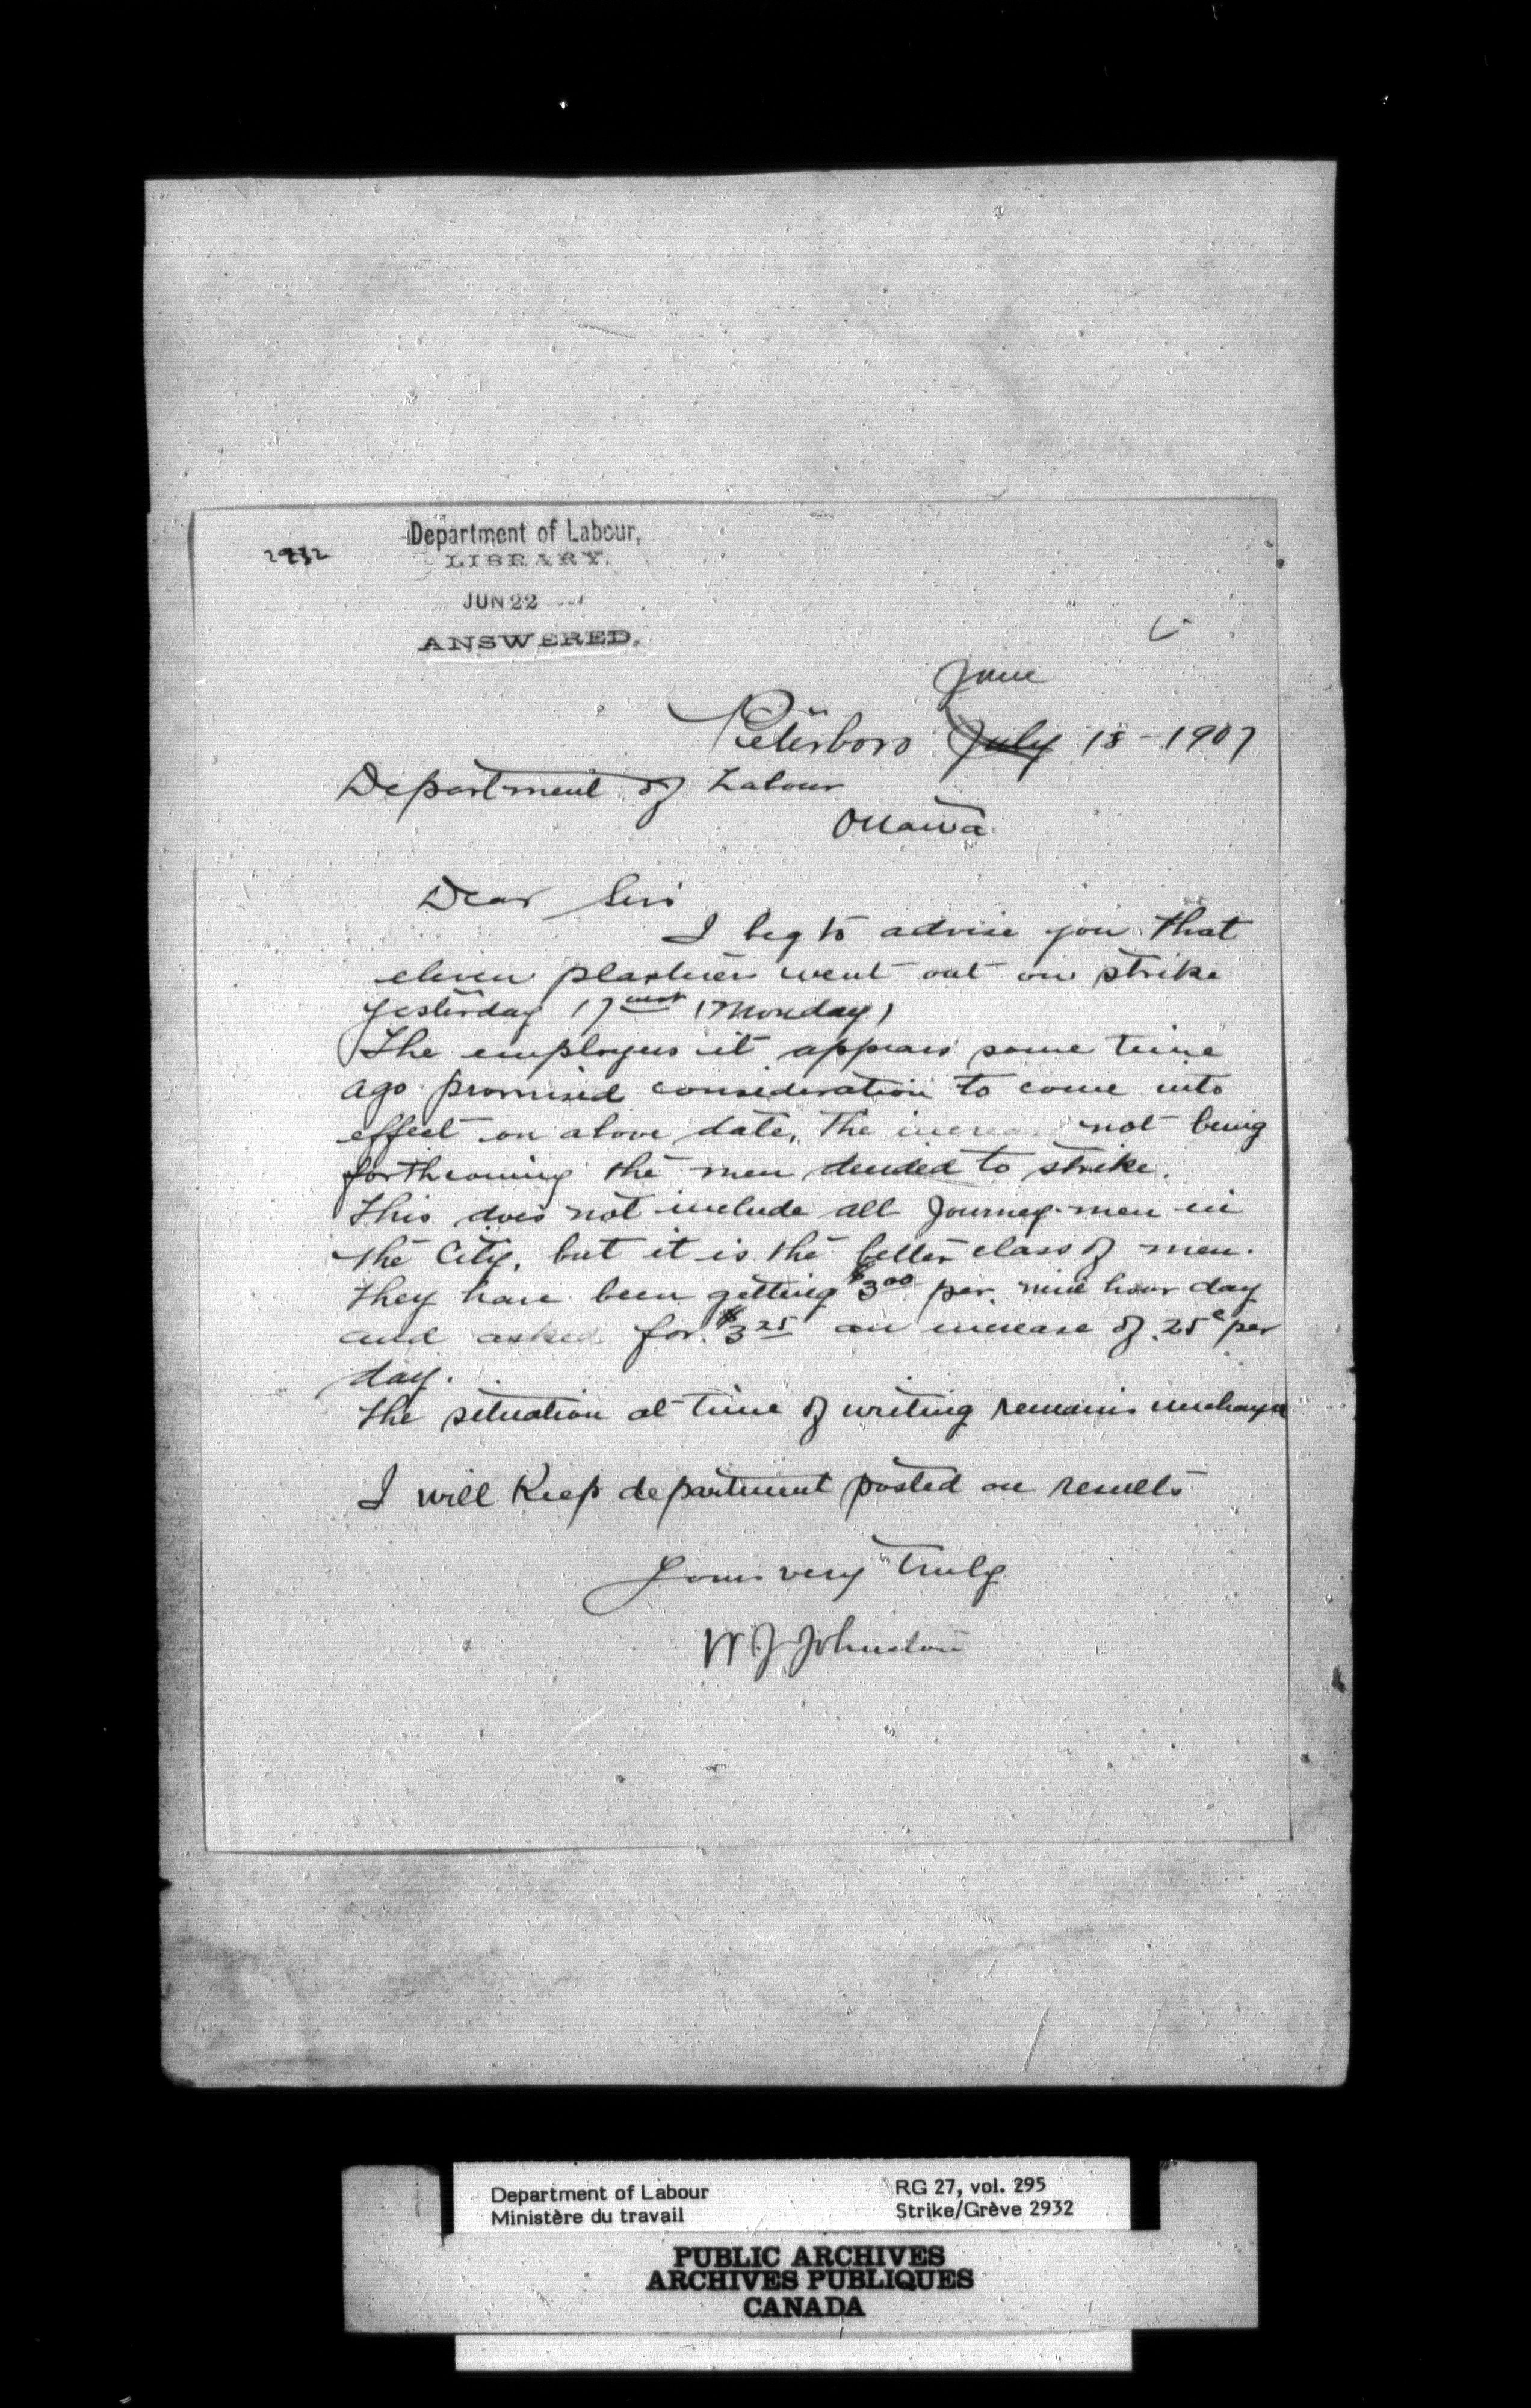 2932
Department of Labour,
LIBRARY.
JUN 22
ANSWERED.
June
Peterboro July 18 - 1907
Department of Labour
Ottawa
Dear Sir
I beg to advise you that
eleven plasterers went out on strike
yesterday 17 inst (Monday)
The employers it appears some time
ago promised consideration to come into
effect on above date, The increase not being
forthcoming the men decided to strike.
This does not include all Journey-men in
the City, but it is the better class of men.
They have been getting $3.00 per nine hour day
and asked for $3 25 an increase of 25c per
day.
The situation at time of writing remains
I will Keep department posted on results
Yours very truly
W J Johnston
Department of Labour
Ministère du travail
RG 27, vol. 295
Strike/Grève 2932
PUBLIC ARCHIVES
ARCHIVES PUBLIQUES
CANADA